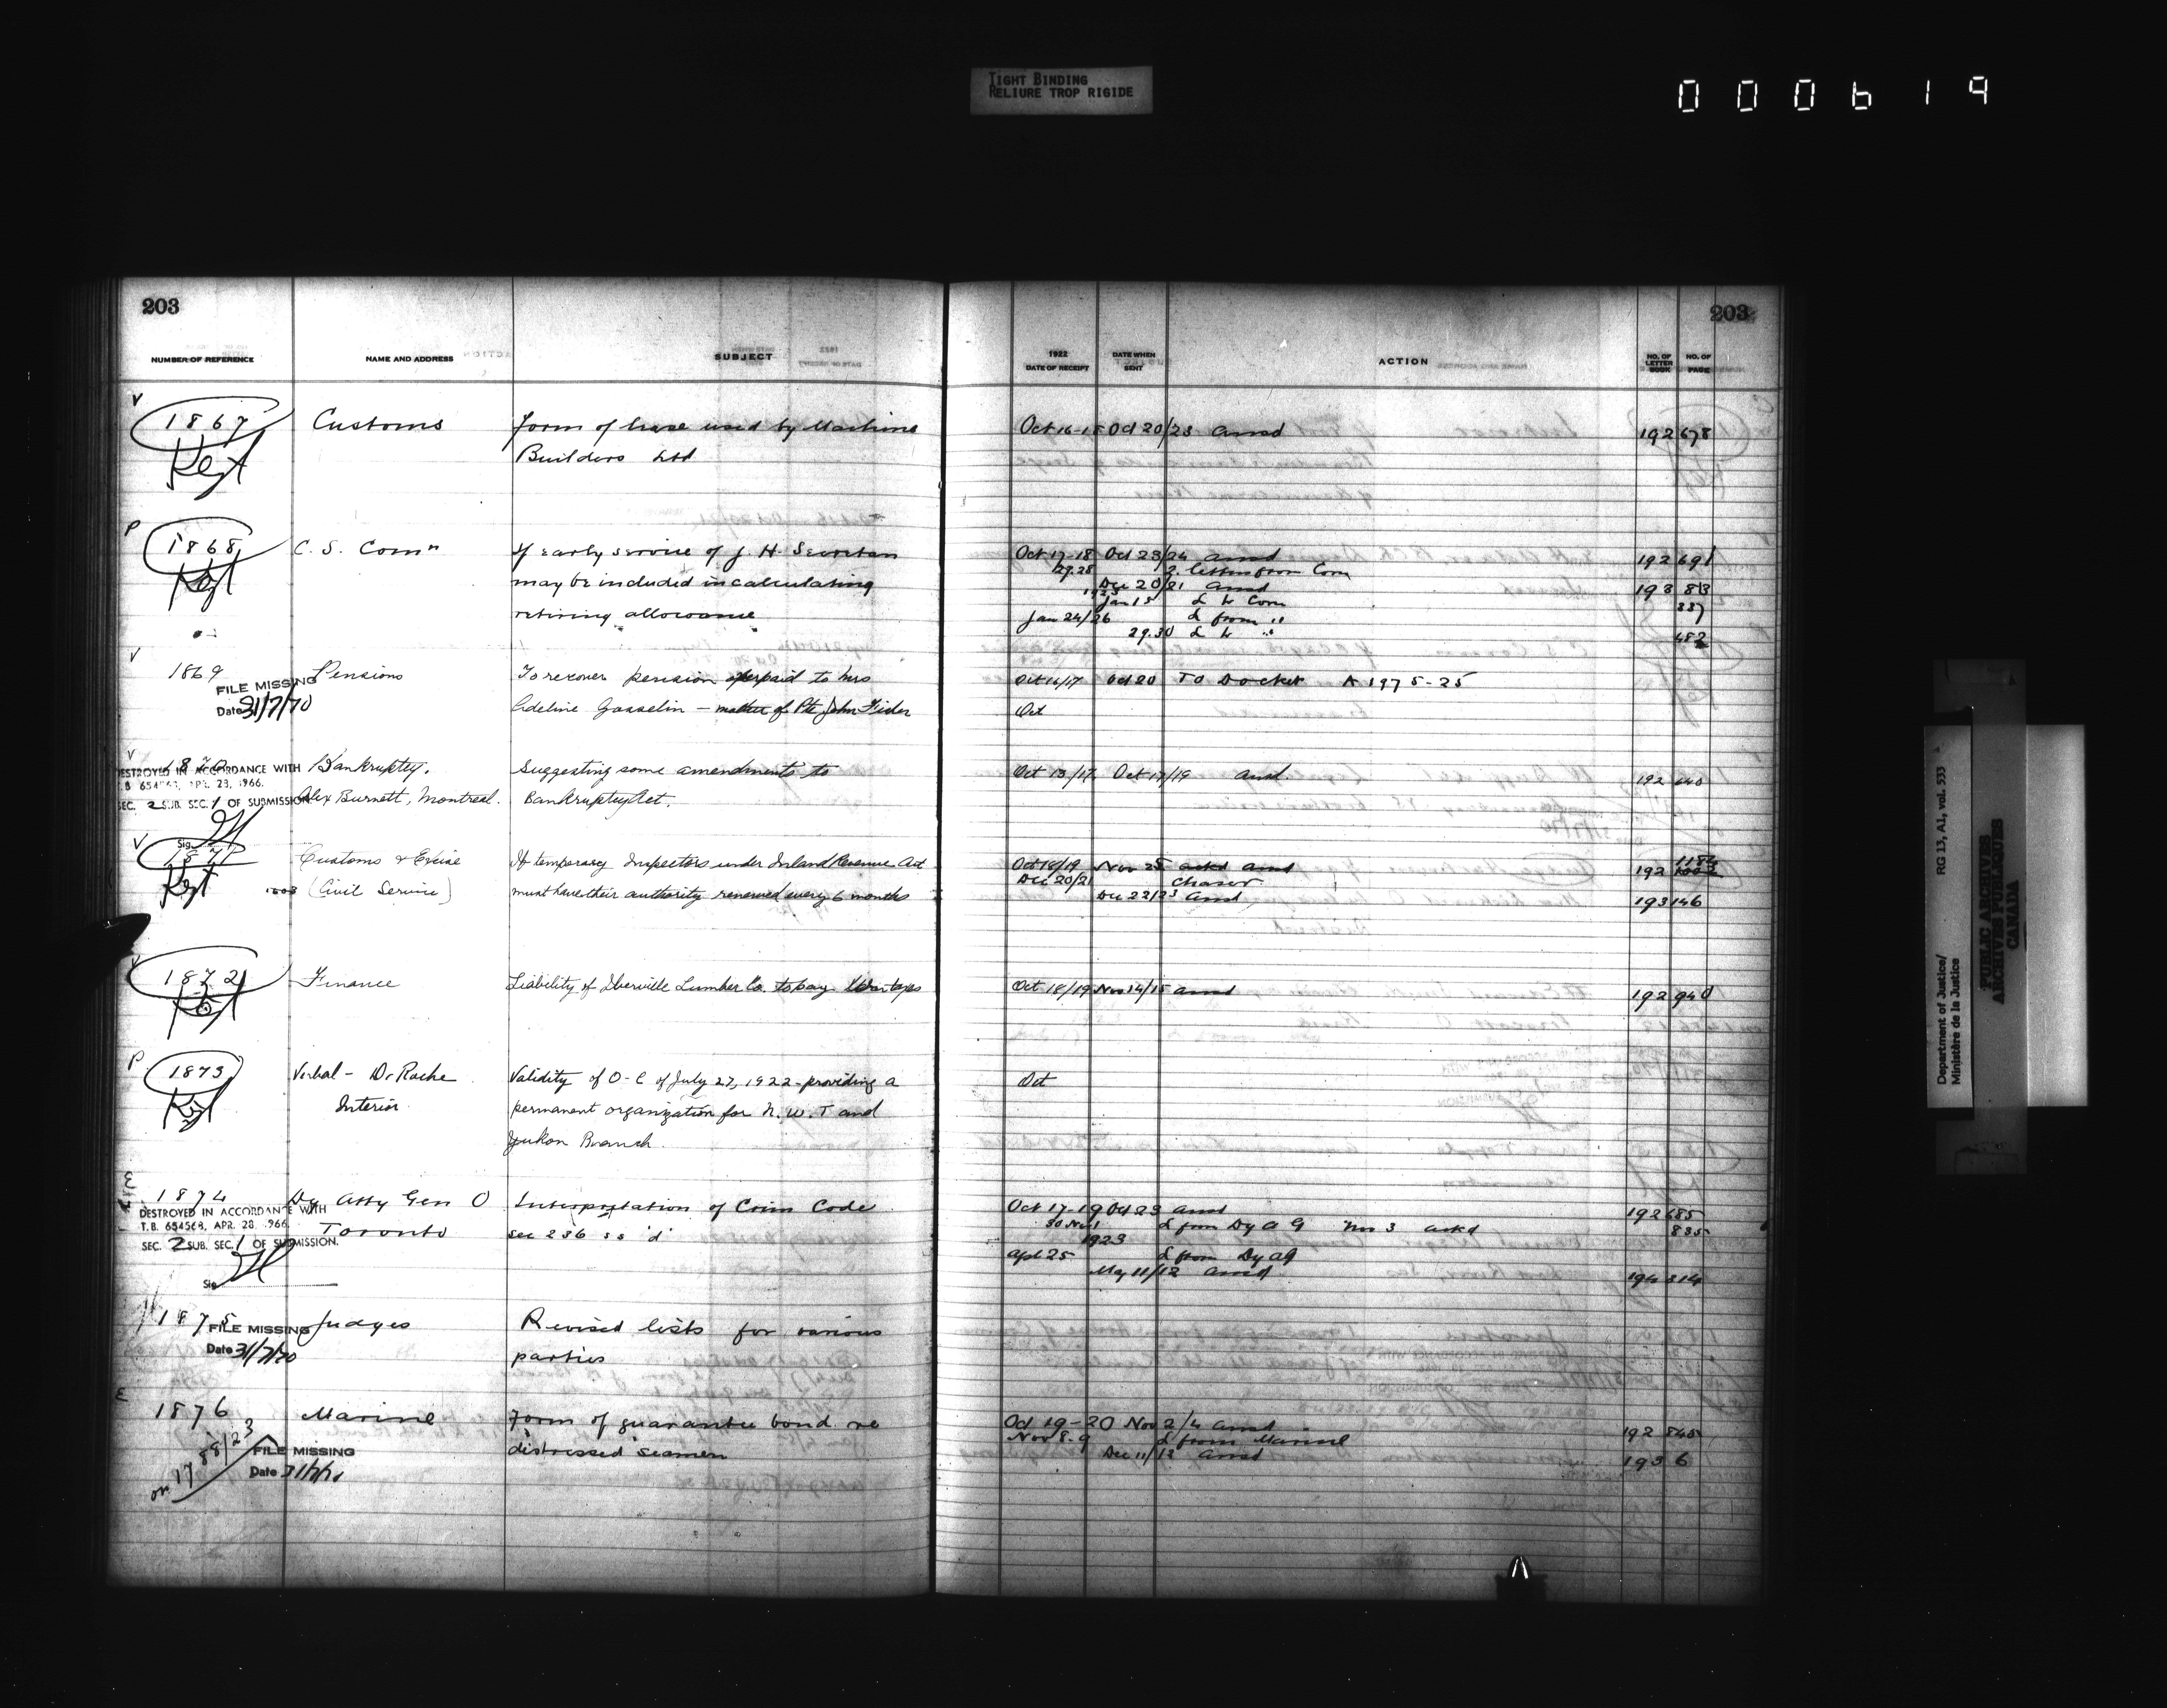 TIGHT BINDING
RELIURE TROP RIGIDE
000619
203
203
NUMBER OF REFERENCE NAME AND ADDRESS SUBJECT 1922 DATE OF RECEIPT DATE WHEN SENT ACTION NO. OF LETTER BOOK NO. OF PAGE
V
1867 Customs Form of lease used by Machine Oct 16-18 Oct 20/23 Ansd 192 678
Kept Builders Ltd
P
1868 C. S. Comn If early service of J. H. Secretan Oct 17-18 Oct 23/24 Ansd 192 691
Kept 27.28 2 letters from Com
may be included in calculating Dec 20/21 Ansd 193 83
1923 Jan 15 L to Com 337
retiring allowance Jan 24/26 L from "
29.30 L to " 482
V
1869 Pensions To recover pension overpaid to Mrs Oct 16/17 Oct 20 To Docket A 1975-25
FILE MISSING
Date 31/7/70 Adeline Gosselin - mother of Pte John Fider Oct
V
1870 Bankruptcy. Suggesting some amendments to Oct 13/17 Oct 17/19 Ansd. 192 640
DESTROYED IN ACCORDANCE WITH
T.B. 654563, APR. 28, 1966.
SEC. 2 SUB. SEC. 1 OF SUBMISSION
Alex Burnett, Montreal. Bankruptcy Act.
Sig.
V
1871 Customs & Excise If temporary Inspectors under Inland Revenue Act Oct 18/19 Nov 25 ackd Ansd 192
Kept Dec 20/21 Chaser
(Civil Service) must have their authority renewed every 6 months Dec 22/23 Ansd 193 146
1872 Finance Liability of Iberville Lumber Co. to pay War taxes Oct 18/19 Nov 14/15 Ansd 192 940
Kept
P
1873 Verbal - Dr Roche Validity of O-C of July 27, 1922 - providing a Oct
Kept Interior permanent organization for N. W. T and
Yukon Branch.
E
1874 Dy Atty Gen O Interpretation of Crim Code Oct 17-19 Oct 23 Ansd 192 685
DESTROYED IN ACCORDANCE WITH
T.B. 654563, APR. 28, 1966
Toronto sec 236 ss 'd' 30 Nov 1 L from Dy A G Nov 3 ackd 835
SEC. 2 SUB. SEC. 1 OF SUBMISSION.
1923
Apl 25 L from Dy AG
Sig May 11/12 Ansd 194 314
1875 Judges Revised lists for various
FILE MISSING
Date 31/7/70 parties
E
1876 Marine Form of guarantee bond re Oct 19-20 Nov 2/4 Ansd 192 845
distressed seamen Nov 8.9 L from Marine
on 1788/23 Dec 11/12 Ansd 193 6
FILE MISSING
Date 31/7/70
Department of Justice/ RG 13, A1, vol. 533
Ministère de la Justice
PUBLIC ARCHIVES
ARCHIVES PUBLIQUES
CANADA